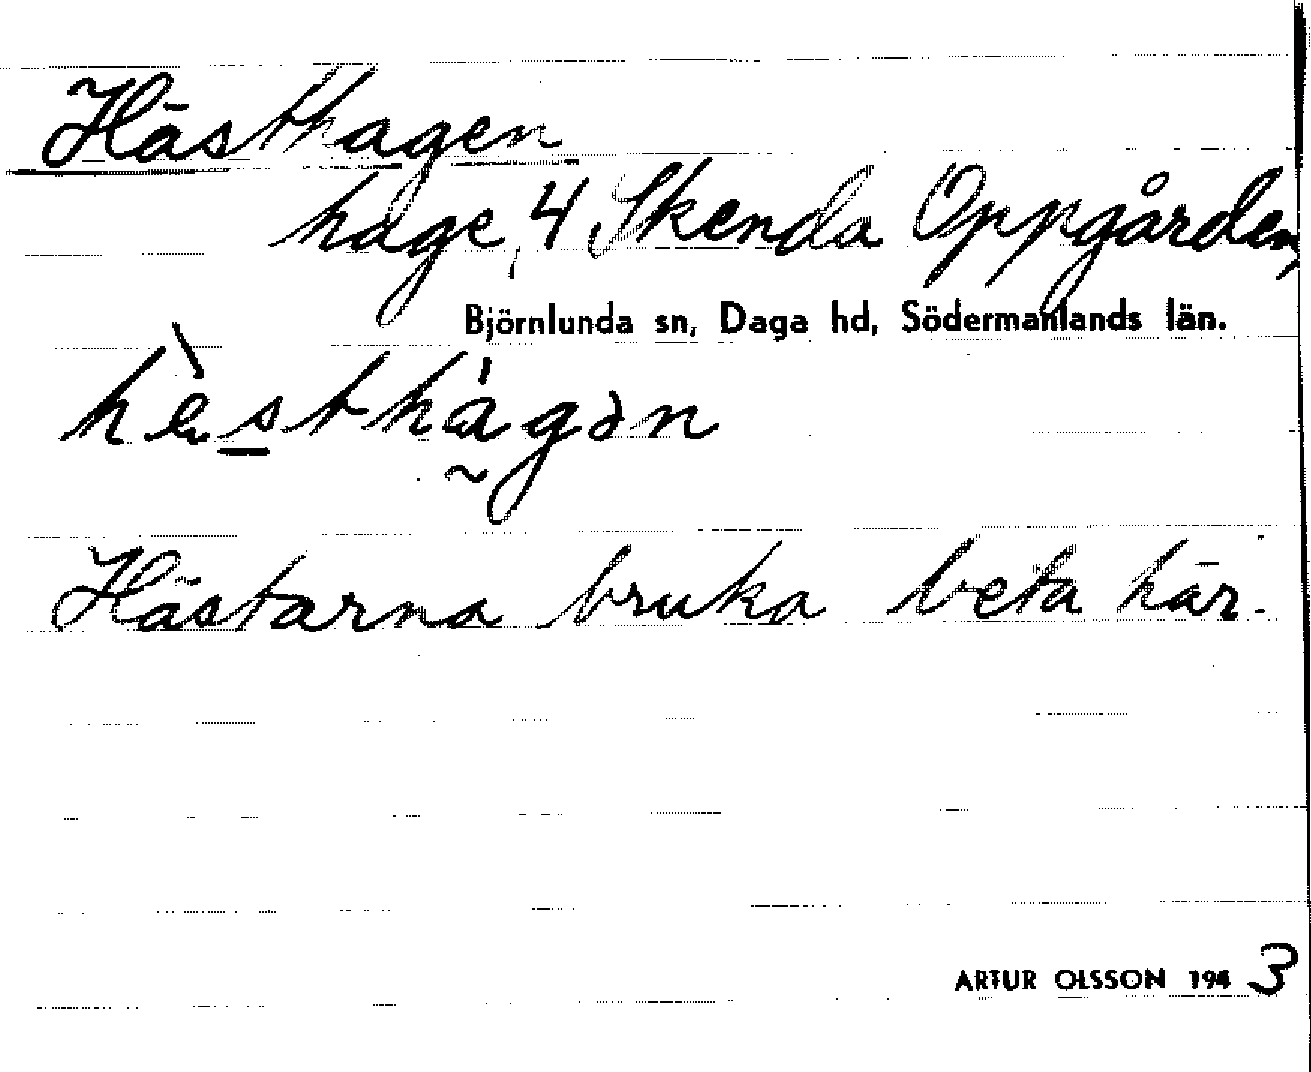 Hästhagen
hage, 4 Skenda Oppgården,
Björnlunda sn, Daga hd, Södermanlands län.
hὲsthágən
Hästarna bruka beta här.
ARTUR OLSSON 1943